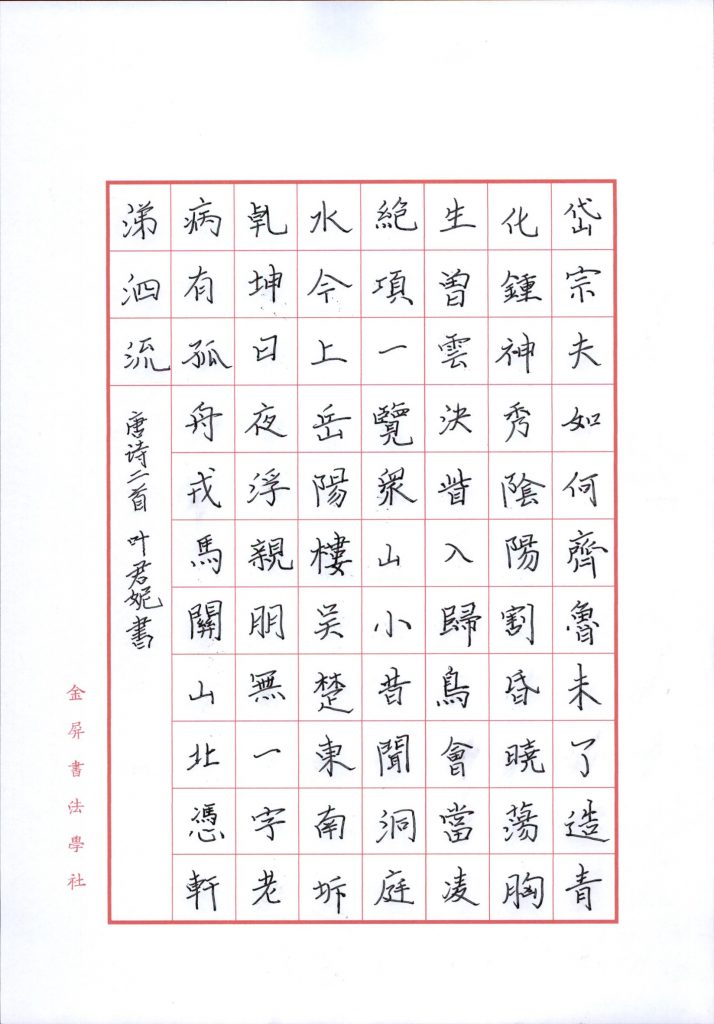 岱宗夫如何齊魯未了造青
化鍾神秀陰陽割昏曉蕩胸
生曾雲決眥入歸鳥會當凌
絕項一覽衆山小昔聞洞庭
水今上岳陽樓吳楚東南坼
乾坤日夜浮親朋無一字老
病有孤舟戎馬關山北憑軒
涕泗流
唐诗二首 叶君妮書
金屏書法學社